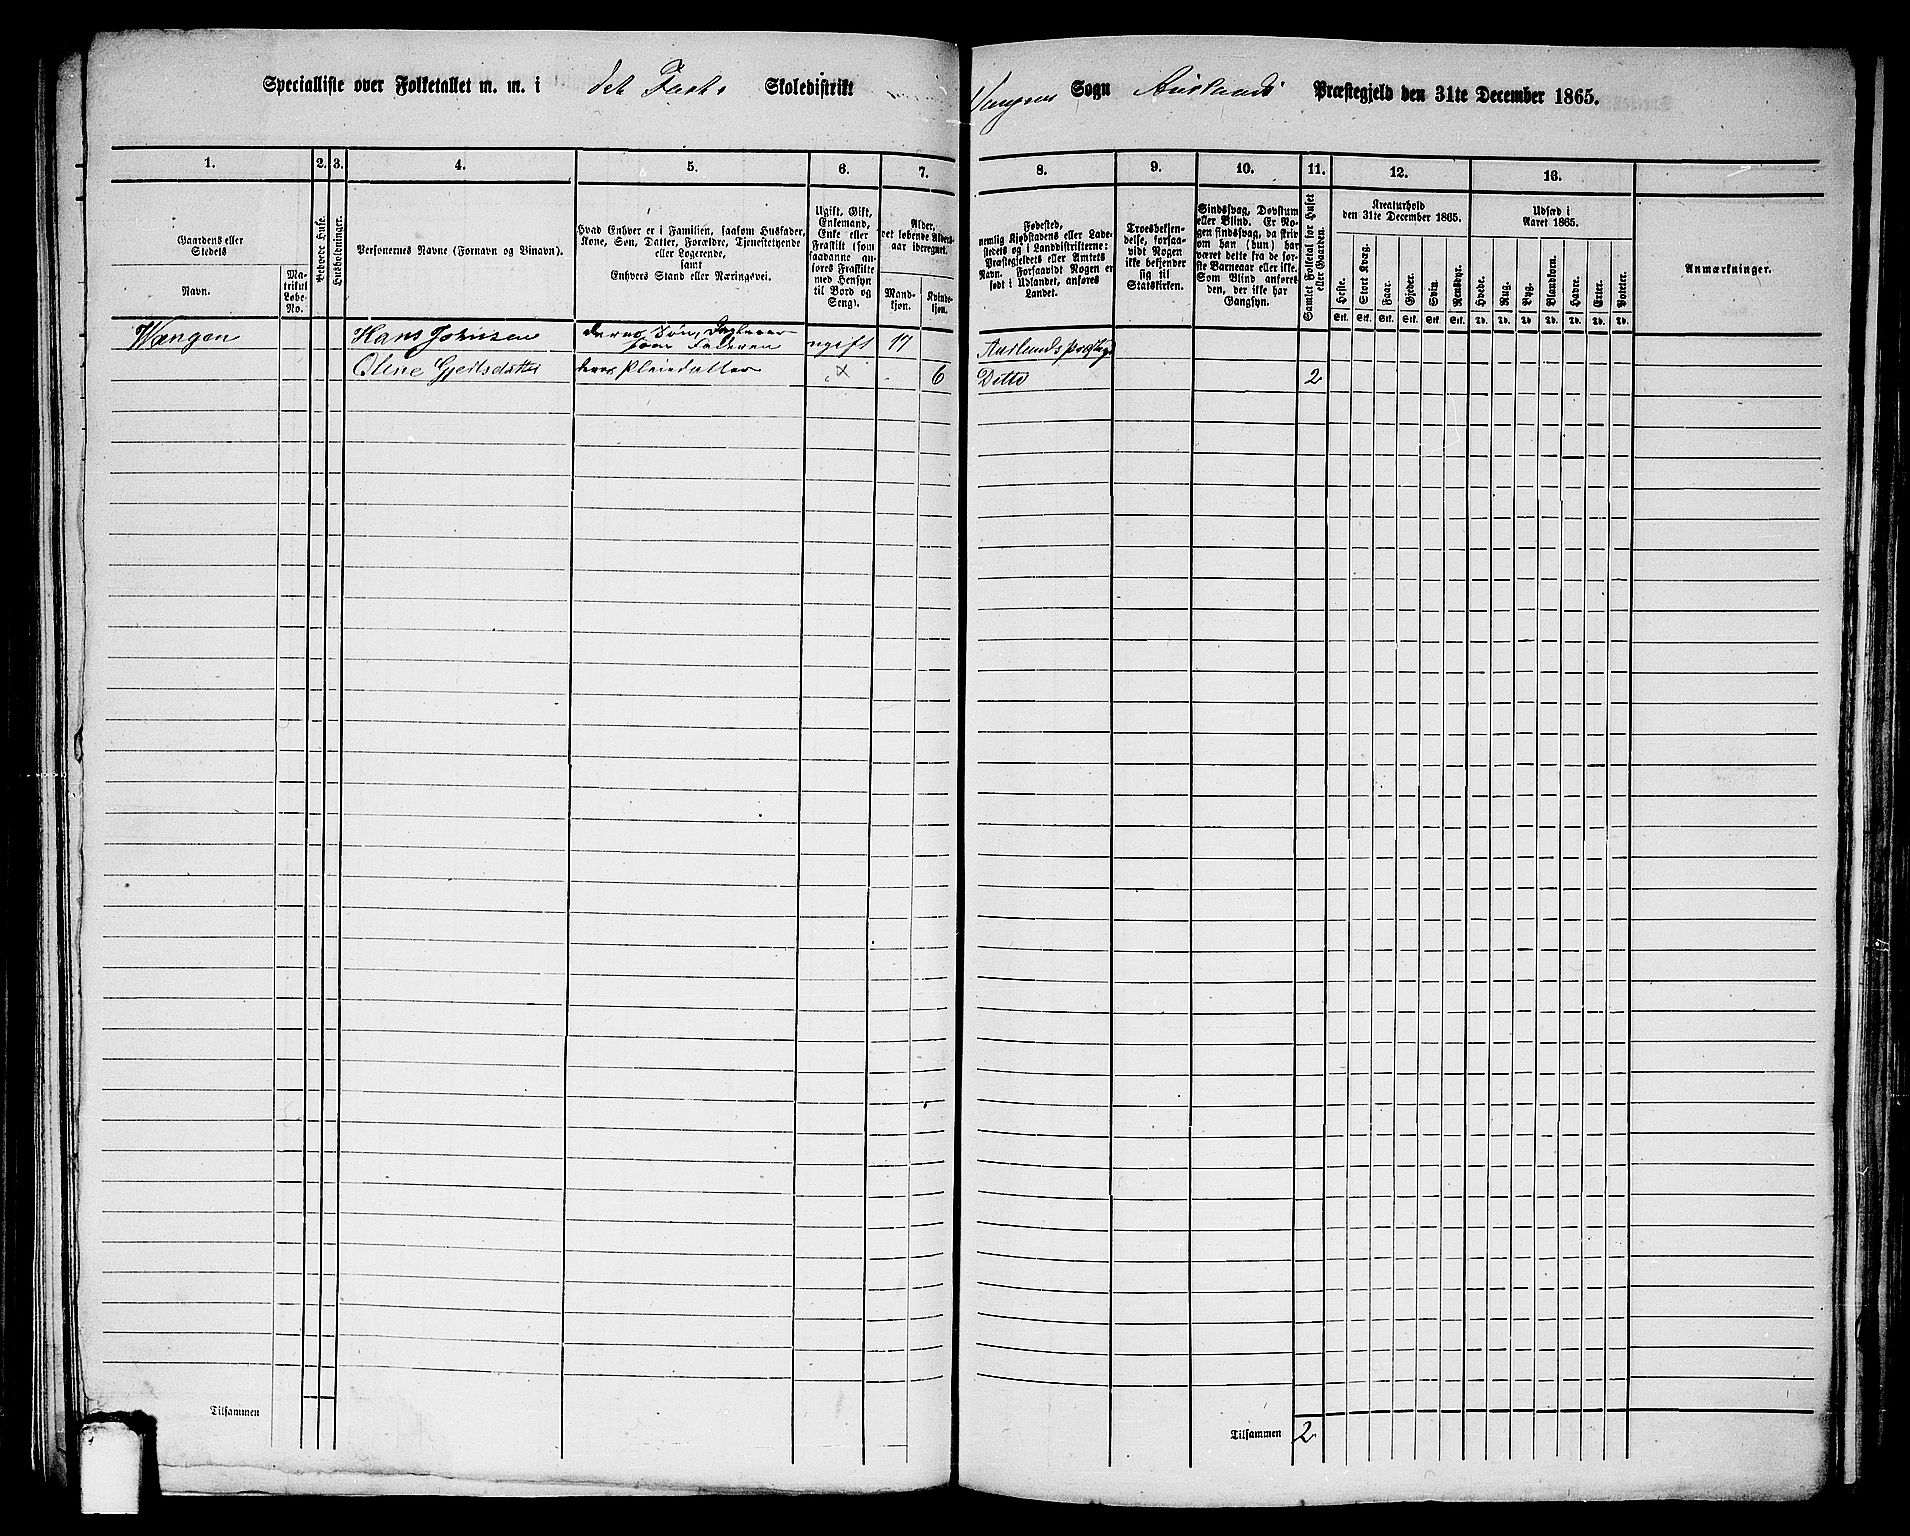 Specialliste over Folketallet m. m. i det Faste Skoledistrikt
Sogn Aurlands Præstegjeld den 31te December 1865.
1. 2. 3. 4. 5. 6. 7.
8. 9. 10. 11. 12. 13.
Gaardens eller Stedets
Navn.
Matrikul Løbe-No.
Beboede Huse.
Husholdninger.
Personernes Navne (Fornavn og Binavn).
Hvad Enhver er i Familien, saasom Husfader, Kone, Søn, Datter, Forældre, Tjenestetyende eller Logerende,
samt
Enhvers Stand eller Næringsvei.
Ugift, Gift, Enkemand, Enke eller Fraskilt (som saadanne anføres Fraskilte med Hensyn til Bord og Seng).
Alder, det løbende Aldersaar iberegnet.
Mandkjøn.
Kvindekjøn.
Fødested,
nemlig Kjøbstadens eller Ladestedets og i Landdistrikterne: Præstegjeldets eller Amtets Navn. Forsaavidt Nogen er født i Udlandet, anføres Landet.
Troesbekjendelse, forsaavidt Nogen ikke bekjender sig til Statskirken.
Sindssvag, Døvstum eller Blind. Er Nogen sindssvag, da skrives om han (hun) har været dette fra de første Barneaar eller ikke. Som Blind anføres den, der ikke har Gangsyn.
Samlet Folketal for Huset eller Gaarden.
Kreaturhold
den 31te December 1865.
Heste. Stort Kvæg. Faar. Gjeder. Svin. Rensdyr.
Stk. Stk. Stk. Stk. Stk. Stk.
Udsæd i
Aaret 1865.
Hvede. Rug. Byg. Blandkorn. Havre. Erter. Poteter.
Td. Td. Td. Td. Td. Td. Td.
Anmærkninger.
Wangen Hans Johnsen deres Søn, ugift 17 Aurlands
som Faderen
Oline Gjertsdatter deres Pleiedatter 6 Ditto 2
Tilsammen
Tilsammen 2